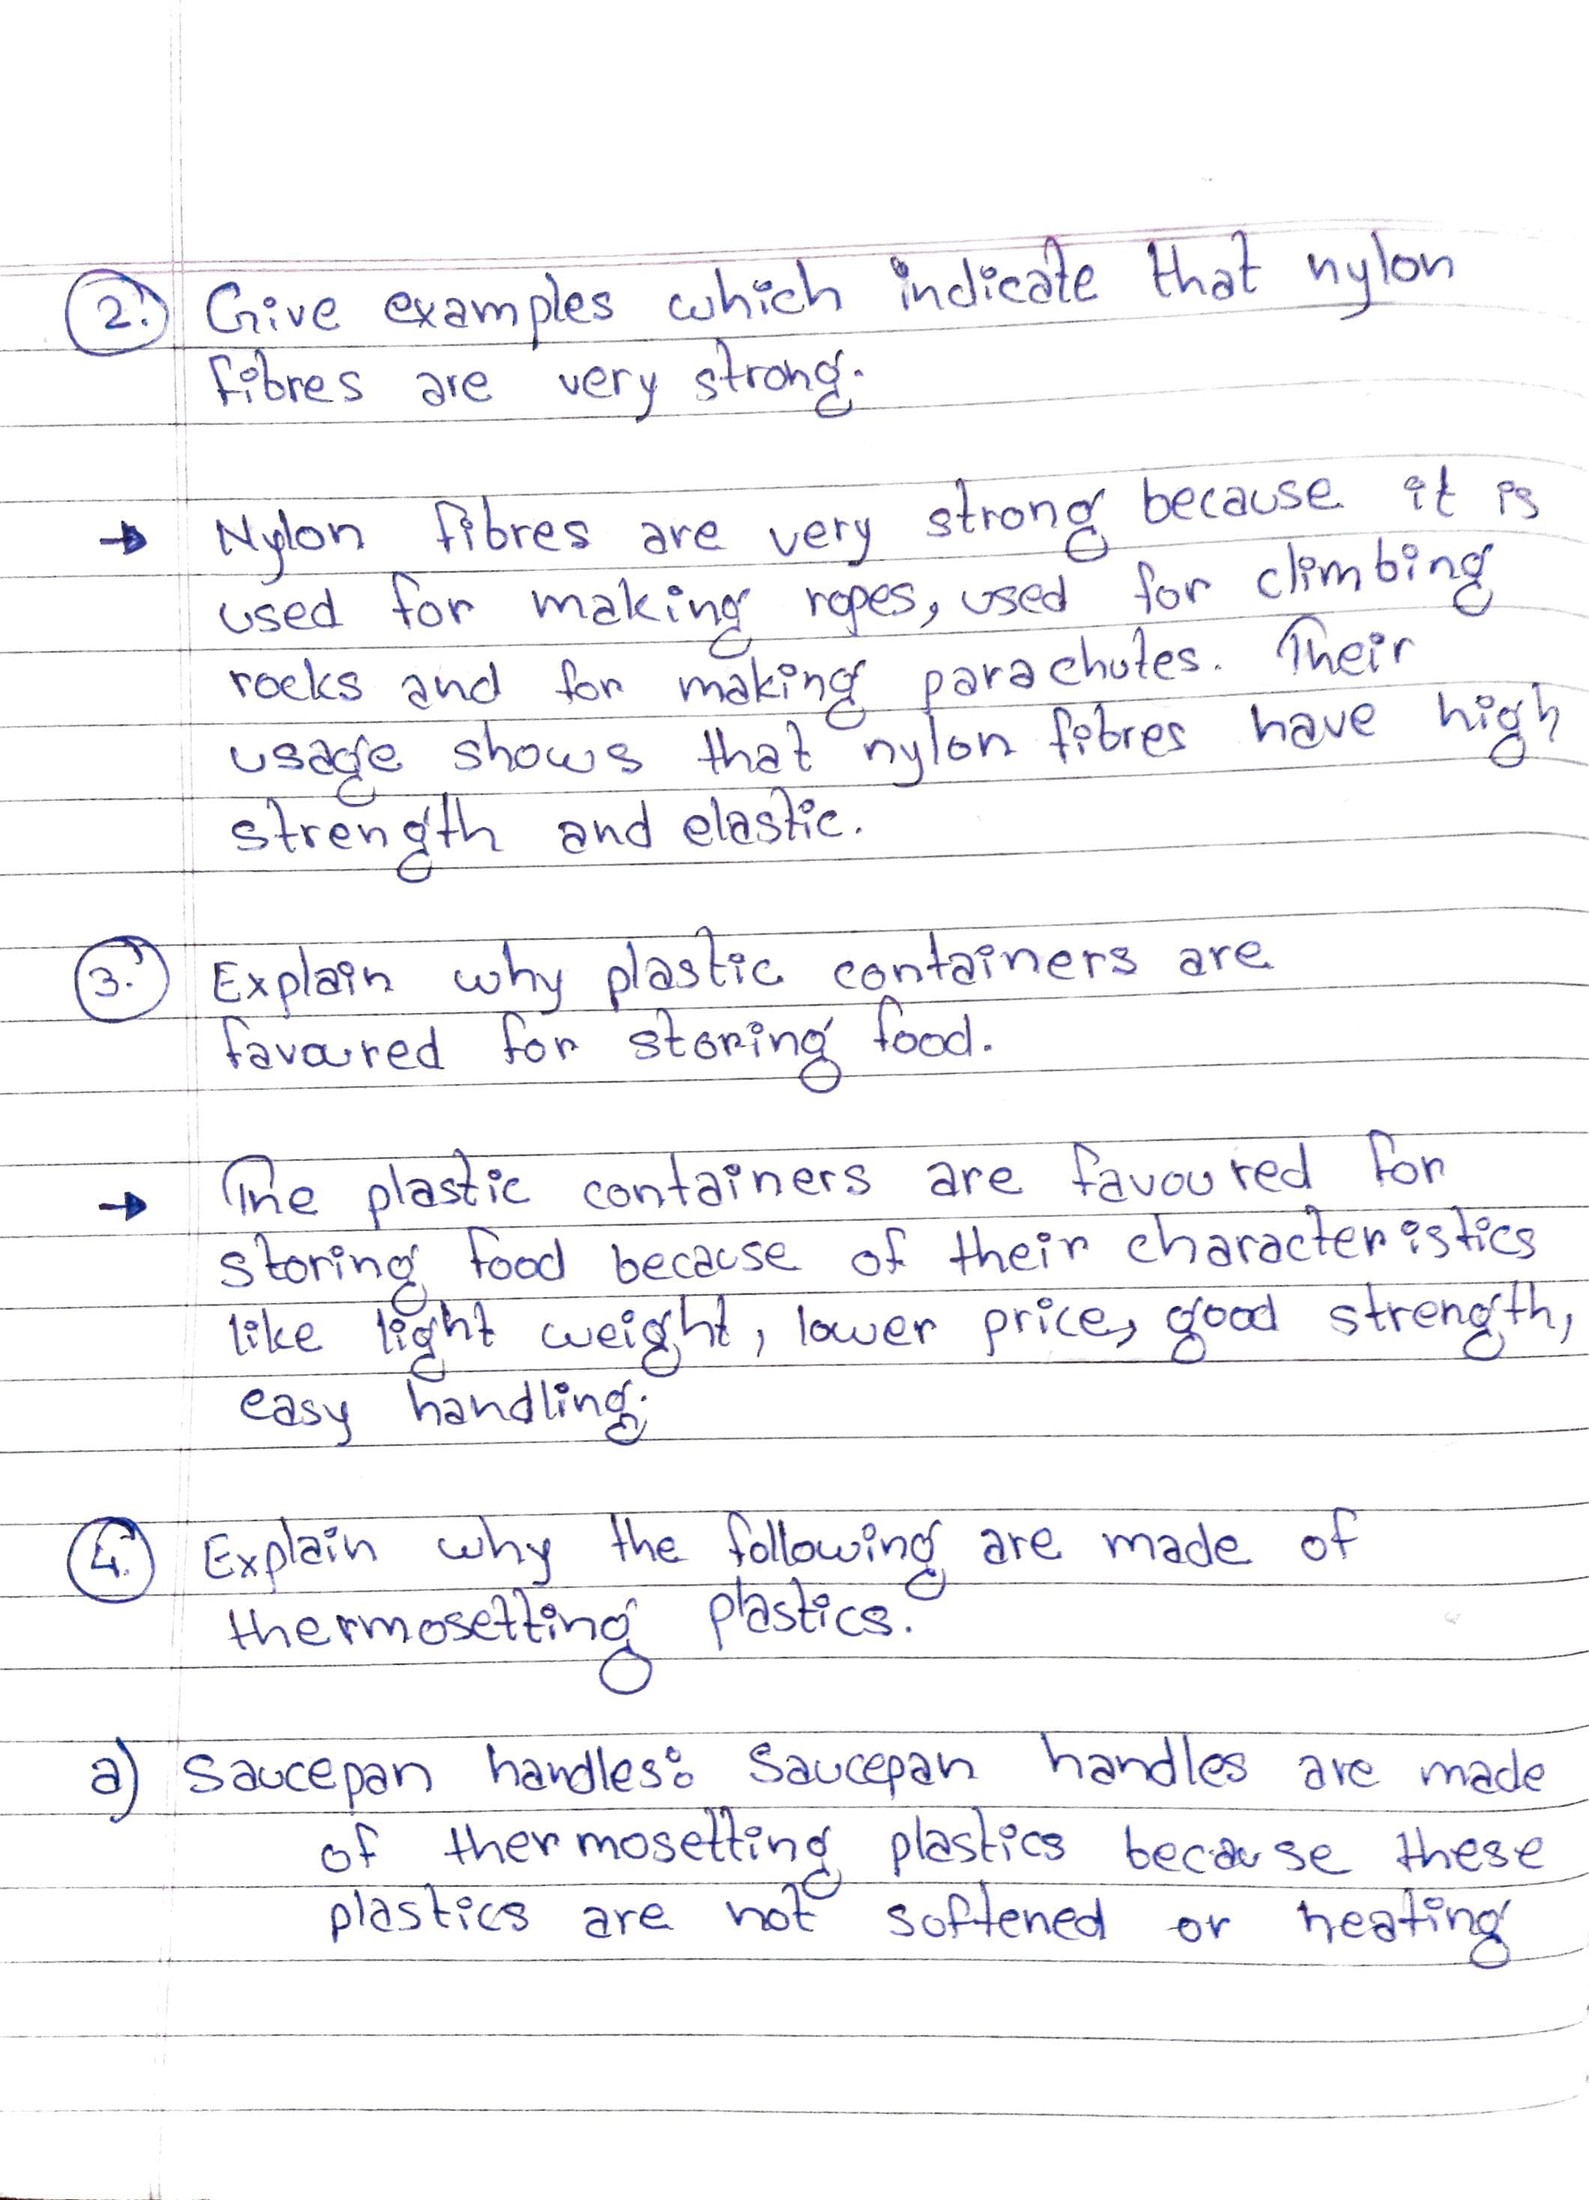 2. Give examples which indicate that nylon
fibres are very strong.
→ Nylon fibres are very strong because it is
used for making ropes, used for climbing
rocks and for making parachutes. Their
usage shows that nylon fibres have high
strength and elastic.
3. Explain why plastic containers are
favoured for storing food.
→ The plastic containers are favoured for
storing food because of their characteristics
like light weight, lower price, good strength,
easy handling.
4. Explain why the following are made of
thermosetting plastics.
a) Saucepan handles: Saucepan handles are made
of thermosetting plastics because these
plastics are not softened or heating